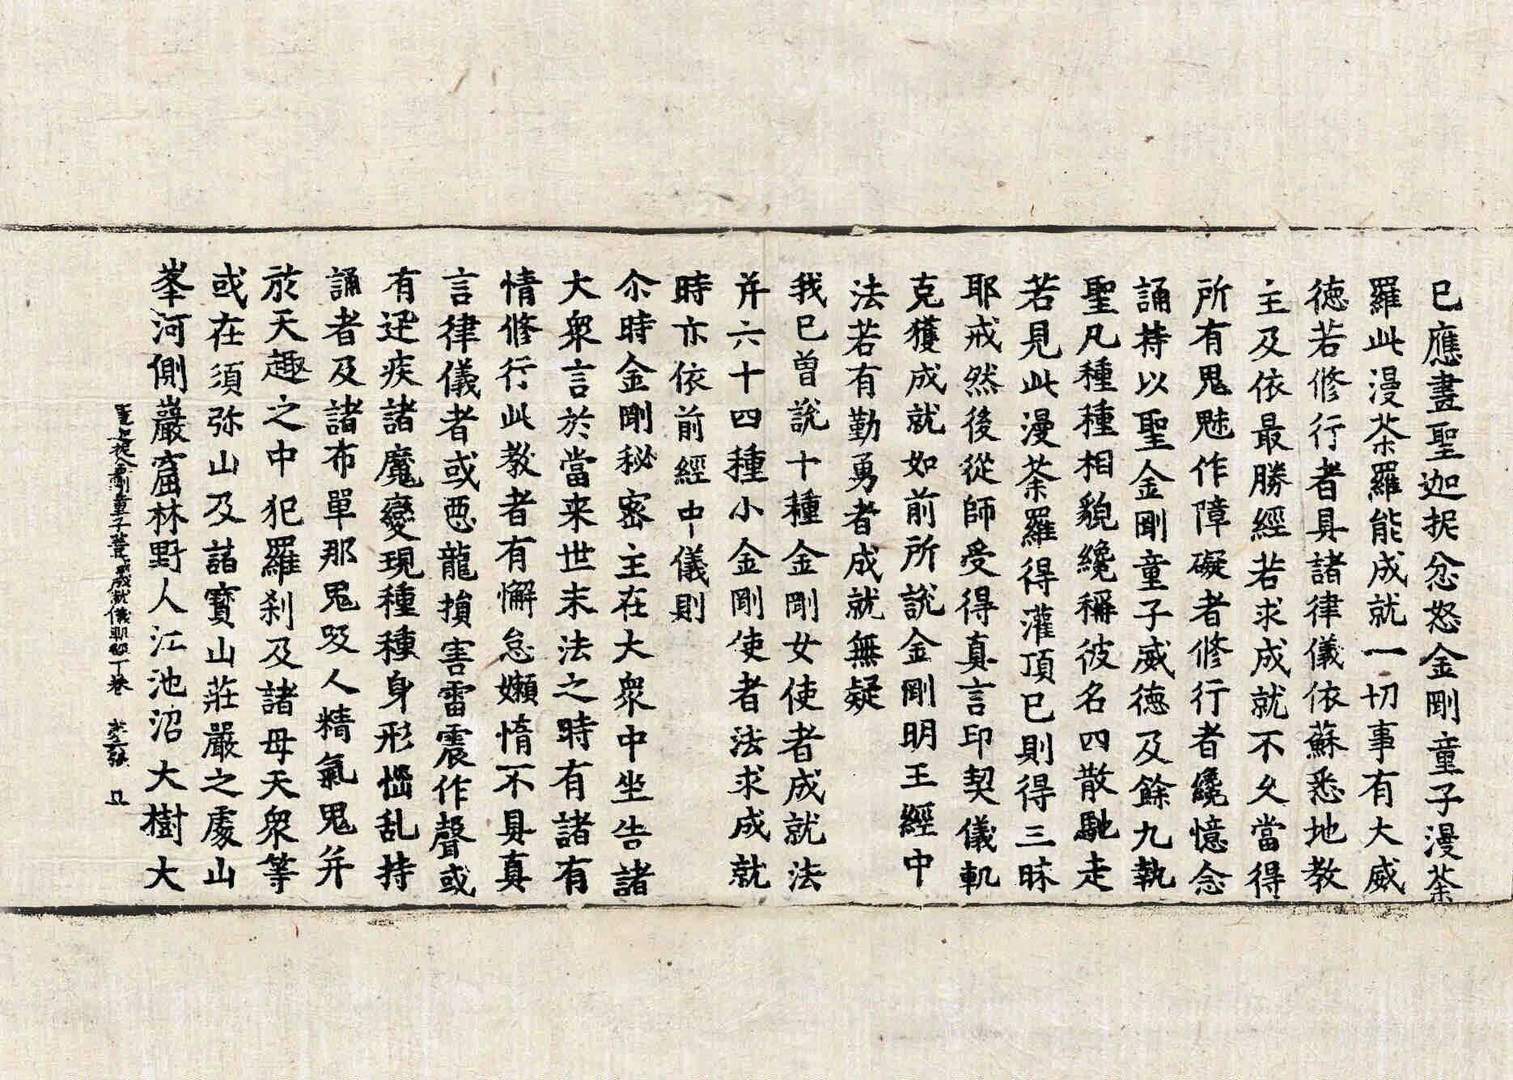 已應畫聖迦抳忿怒金剛童子漫荼
羅此漫荼羅能成就一切事有大威
徳若修行者具諸律儀依蘇悉地教
主及依最勝經若求成就不久當得
所有鬼魅作障礙者修行者纔憶念
誦持以聖金剛童子威德及餘九執
聖凡種種相貌纔稱彼名四散馳走
若見此漫荼羅得灌頂已則得三昧
耶戒然後從師受得真言印契儀軌
克獲成就如前所說金剛明王經中
法若有勤勇者成就無疑
我已曽說十種金剛女使者成就法
并六十四種小金剛使者法求成就
時亦依前經中儀則
尒時金剛秘密主在大衆中坐告諸
大衆言於當来世末法之時有諸有
情修行此教者有懈怠嬾惰不具真
言律儀者或惡龍損害雷震作聲或
有逆疾諸魔變現種種身形惱乱持
誦者及諸布單那鬼吸人精氣鬼并
於天趣之中犯羅刹及諸母天衆等
或在須弥山及諸寶山莊嚴之處山
峯河側巖窟林野人江池沼大樹大
金剛童子菩成就儀軌經下卷